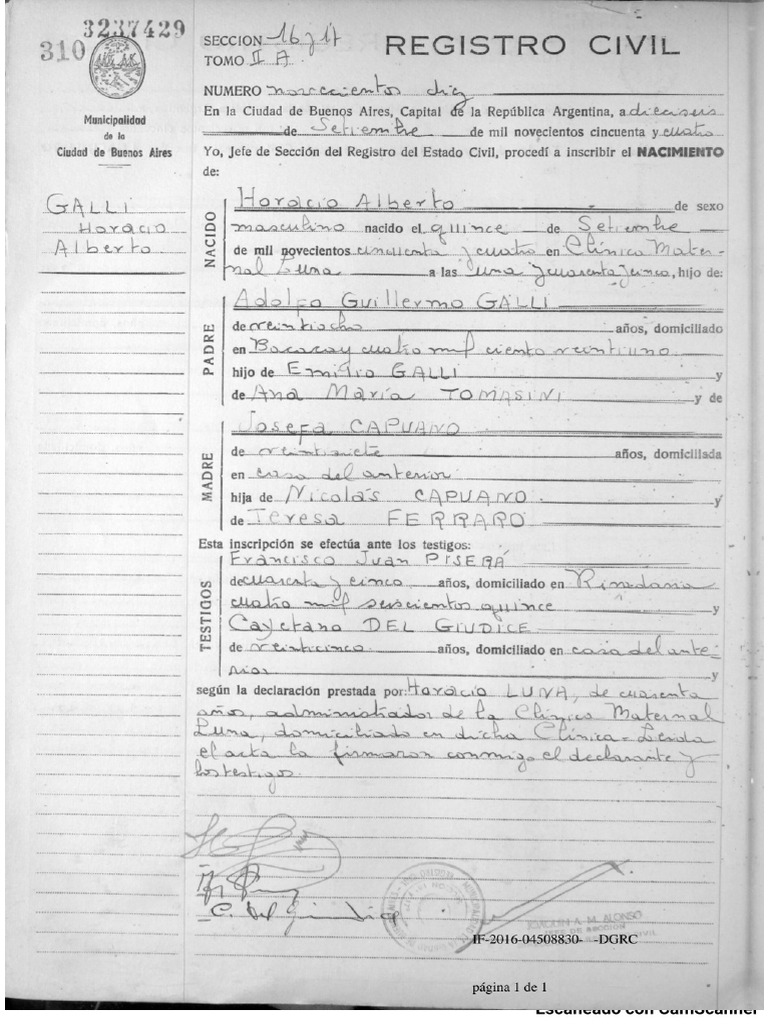 3237429
310
SECCION 16 y 17
TOMO II A
REGISTRO CIVIL
NUMERO novecientos diez
Municipalidad
de la
Ciudad de Buenos Aires
En la Ciudad de Buenos Aires, Capital de la República Argentina, a dieciseis
de Setiembre de mil novecientos cincuenta y cuatro
Yo, Jefe de Sección del Registro del Estado Civil, procedí a inscribir el NACIMIENTO
de:
GALLI
Horacio
Alberto
NACIDO
Horacio Alberto de sexo
masculino nacido el quince de Setiembre
de mil novecientos cincuenta y cuatro en Clínica Mater-
nal Luna a las una y cuarenta y cinco, hijo de:
PADRE
Adolfo Guillermo GALLI
de veintiocho años, domiciliado
en Bacacay cuatro mil ciento veintiuno
hijo de Emilio GALLI y
de Ana María TOMASINI y de
MADRE
Josefa CAPUANO
de veintisiete años, domiciliada
en casa del anterior
hija de Nicolás CAPUANO y
de Teresa FERRARO
Esta inscripción se efectúa ante los testigos:
TESTIGOS
Francisco Juan PISERÁ
de cuarenta y cinco años, domiciliado en Rivadavia
cuatro mil seiscientos quince y
Cayetano DEL GIUDICE
de veinticinco años, domiciliado en casa del ante-
rior y
según la declaración prestada por: Horacio LUNA, de cuarenta
años, administrador de la Clínica Maternal
Luna, domiciliado en dicha Clínica = Leída
el acta la firmaron conmigo el declarante y
los testigos.
C. Del Giudice
JOAQUIN A. M. ALONSO
JEFE DE SECCION
IF-2016-04508830- -DGRC
página 1 de 1
Escaneado con CamScanner